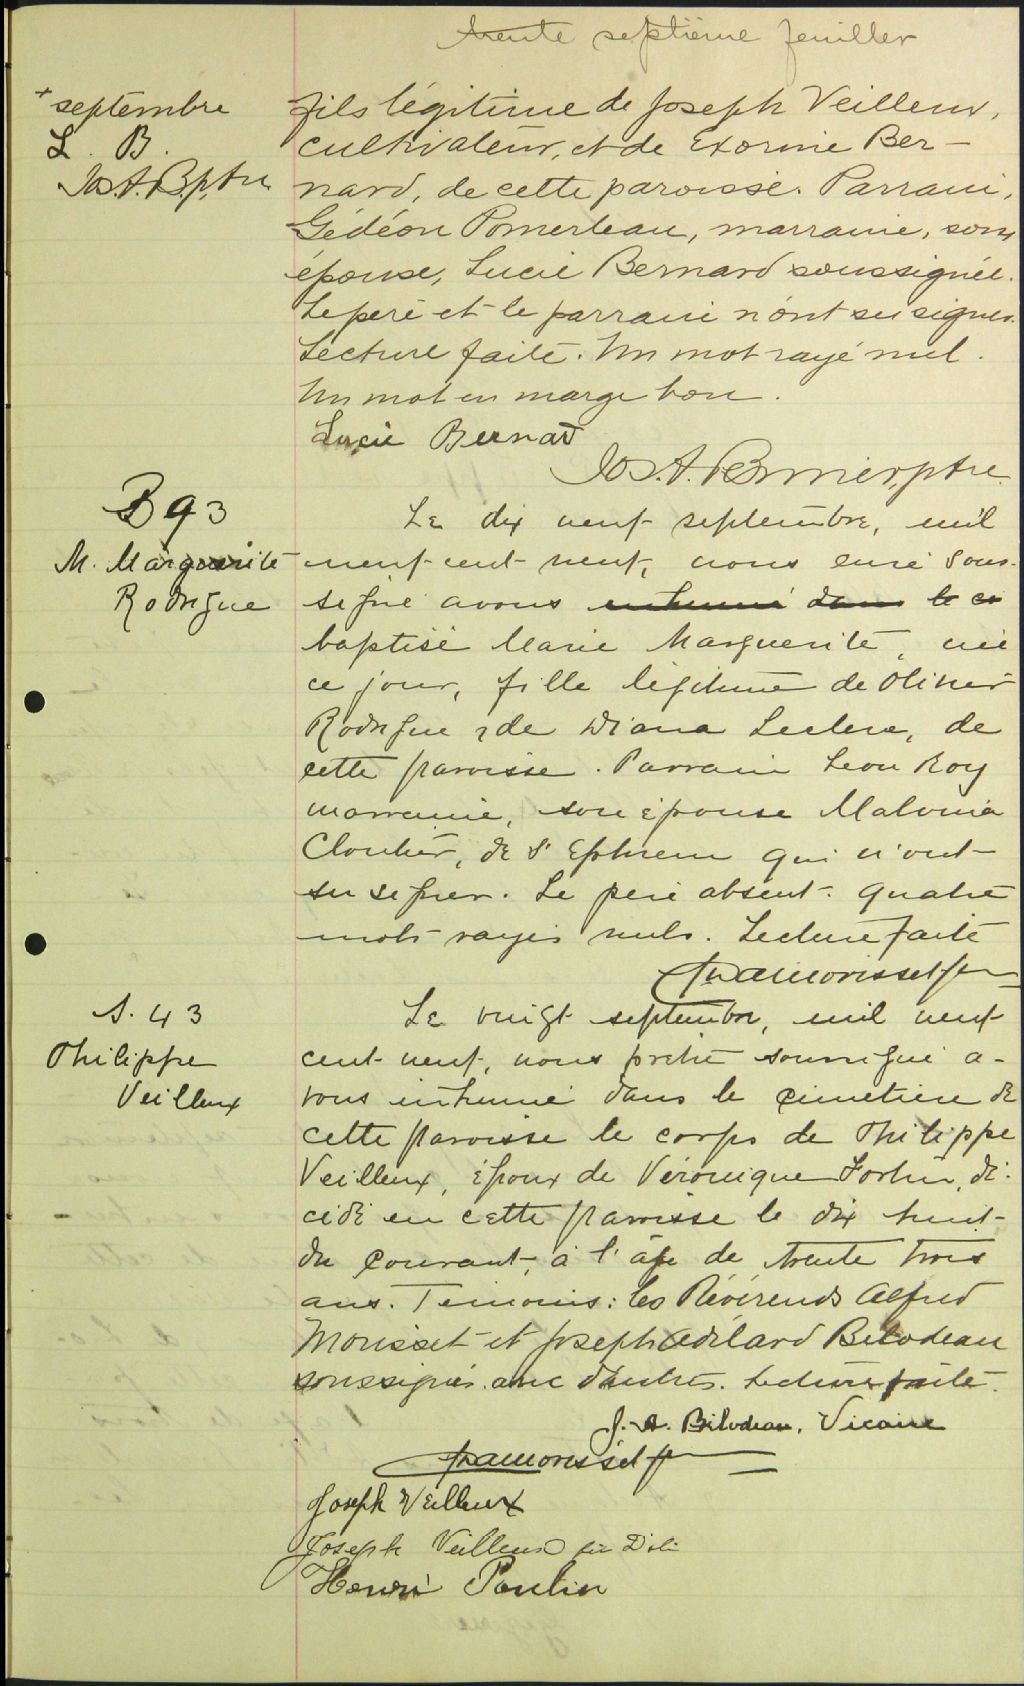 trente septième feuillet
+ septembre
L. B.
Jos. A. B. ptre
fils légitime de Joseph Veilleux,
cultivateur, et de Exorine Ber-
nard, de cette paroisse. Parrain,
Gédéon Pomerleau, marraine, son
épouse, Lucie Bernard soussignée.
Le père et le parrain n'ont su signer.
Lecture faite. Un mot rayé nul.
Un mot en marge bon.
Lucie Bernard
Jos. A. Bernier, ptre
B 93
M. Marguerite
Rodrigue
Le dix neuf septembre, mil
neuf cent neuf, nous curé sous-
signé avons inhumé dans le ci
baptisé Marie Marguerite, née
ce jour, fille légitime de Olivier
Rodrigue & de Diana Leclerc, de
cette paroisse. Parrain Léon Roy
marraine, son épouse Malvina
Cloutier, de St Ephrem qui n'ont
su signer. Le père absent. Quatre
mots rayés nuls. Lecture faite
S. 43
Philippe
Veilleux
Le vingt septembre, mil neuf
cent neuf, nous prêtre soussigné a-
vons inhumé dans le cimetière de
cette paroisse le corps de Philippe
Veilleux, époux de Véronique Fortin, dé-
cédé en cette paroisse le dix huit
du courant, à l'âge de trente trois
ans. Témoins: les Révérends Alfred
Morisset et Joseph Adélard Bilodeau
soussignés avec d'autres. Lecture faite.
J. A. Bilodeau, Vicaire
Joseph Veilleux
Joseph Veilleux
Henri Poulin